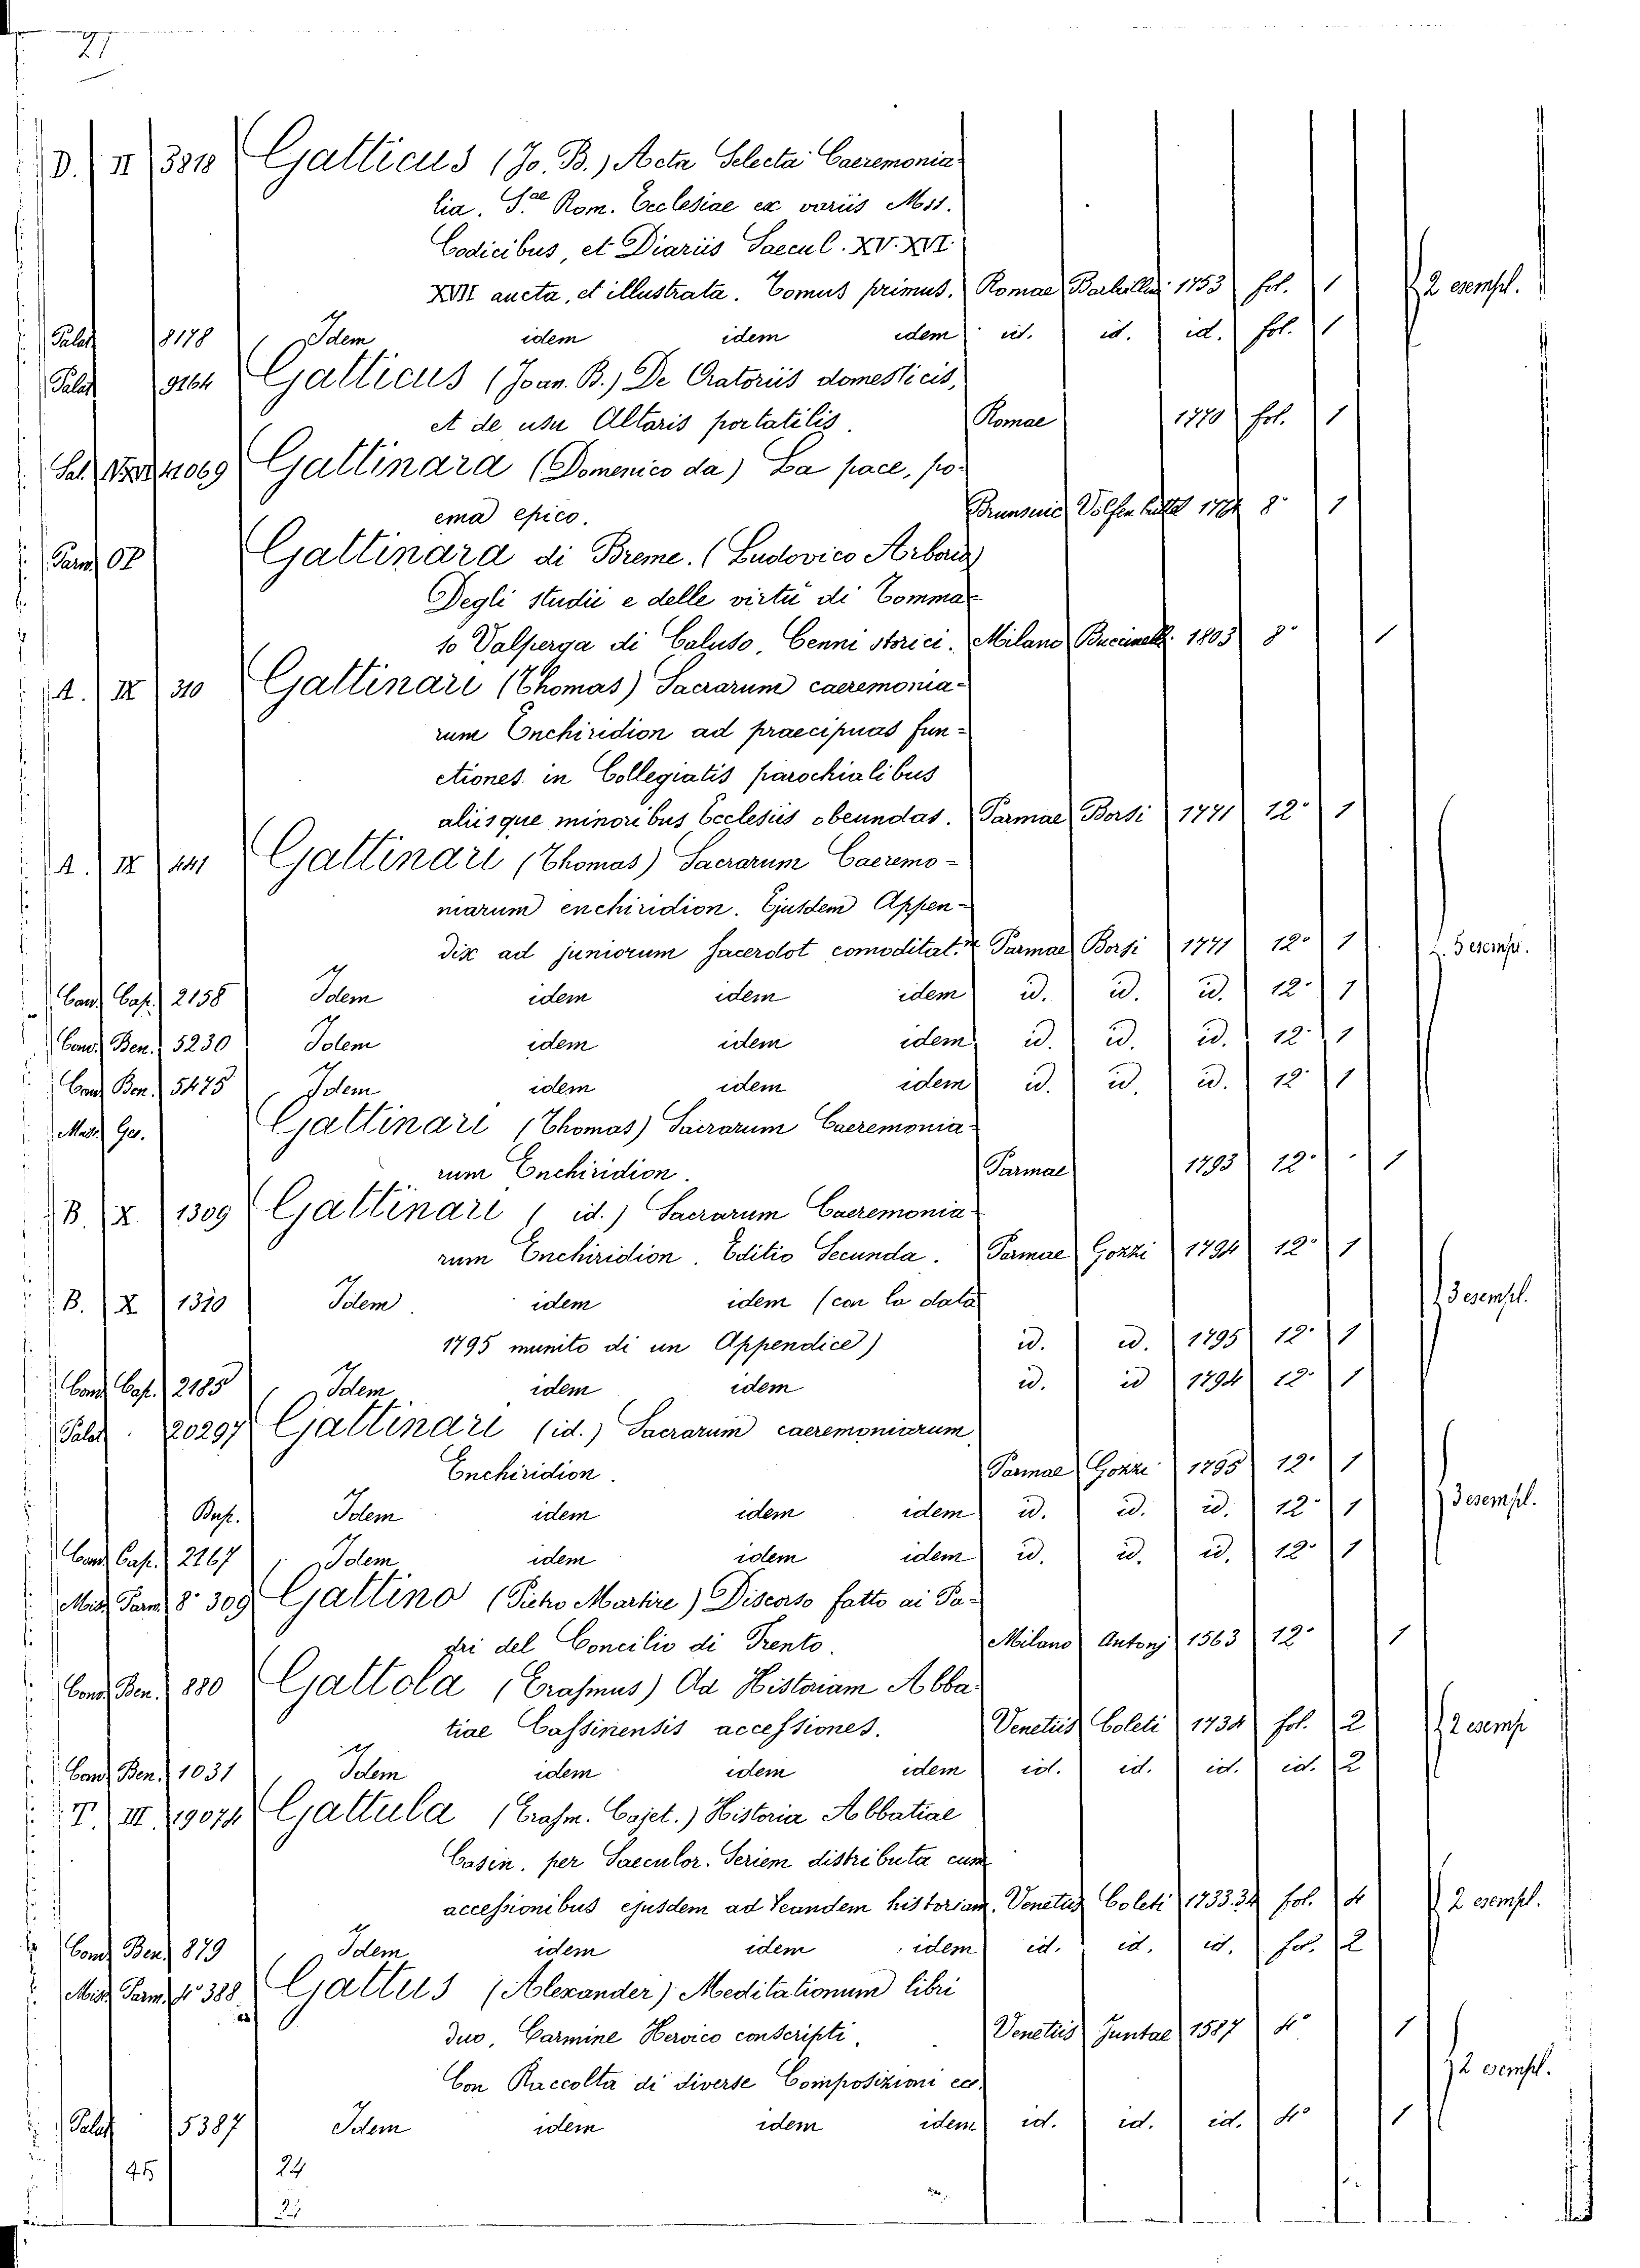 21
D. II 3318 Gatticus (Jo. B.) Acta Selecta Caeremonia-
lia. S.ae Rom. Ecclesiae ex variis Mss.
Codicibus, et Diariis Saecul. XV. XVI.
XVII aucta, et illustrata. Tomus primus. Romae Barbellini 1753 fol. 1 2 esempl.
Palat 8178 Idem idem idem idem id. id. id. fol. 1
Palat 9164 Gatticus (Joan. B.) De Oratoriis domesticis,
et de usu Altaris portatilis. Romae 1770 fol. 1
Sal. 11069 Gattinara (Domenico da) La pace, po-
ema epico. Brunsvic Volfenbuttel 1794 8° 1
Parm. Gattinara di Breme. (Ludovico Arborio)
Degli studii e delle virtù di Comma-
so Valperga di Caluso, Cenni storici. Milano Buccinelli 1803 8° 1
A. IX 310 Gattinari (Thomas) Sacrarum caeremonia-
rum Enchiridion ad praecipuas fun-
ctiones in Collegiatis parochialibus
aliisque minoribus Ecclesiis obeundas. Parmae Borsi 1771 12° 1
A. IX 441 Gattinari (Thomas) Sacrarum Caeremo-
niarum enchiridion. Ejusdem Appen-
dix ad juniorum sacerdot comoditat. Parmae Borsi 1771 12° 1 5 esempl.
Cand Cap. 2158 Idem idem idem idem id. id. id. 12° 1
Cand. Ben. 5230 Idem idem idem idem id. id. id. 12° 1
Cand Ben. 5475 Idem idem idem idem id. id. id. 12° 1
Mss. Ges. Gattinari (Thomas) Sacrarum Caeremonia-
rum Enchiridion. Parmae 1793 12° 1
B. X. 1309 Gattinari (id.) Sacrarum Caeremonia-
rum Enchiridion. Editio Secunda. Parmae Gozzi 1794 12° 1
B. X 1310 Idem idem idem (con la data 3 esempl.
1795 munito di un Appendice) id. id. 1795 12° 1
Cand Cap. 2185 Idem idem idem id. id 1794 12° 1
Palat. 20297 Gattinari (id.) Sacrarum caeremoniarum
Enchiridion. Parmae Gozzi 1795 12° 1
Bup. Idem idem idem idem id. id. id. 12° 1 3 esempl.
Cand Cap. 2167 Idem idem idem idem id. id. id. 12° 1
Misc Parm 8° 309 Gattino (Pietro Martire) Discorso fatto ai Pa-
dri del Concilio di Trento. Milano Antonj 1563 12° 1
Cand Ben. 880 Gattola (Erasmus) Ad Historiam Abba-
tiae Cassinensis accessiones. Venetiis Coleti 1734 fol. 2 2 esemp
Cand Ben. 1031 Idem idem idem idem id. id. id. id. 2
T. III 19074 Gattula (Erasm. Cajet.) Historia Abbatiae
Casin. per Saeculor. Seriem distributa cum
accessionibus ejusdem ad eandem historiam. Venetiis Coleti 1733.34 fol. 4 2 esempl.
Cond Ben 879 Idem idem idem idem id. id. id. fol. 2
Misc Parm. 4° 388 Gattus (Alexander) Meditationum libri
duo, Carmine Heroico conscripti, Venetiis Juntae 1587 4° 1
Con Raccolta di diverse Composizioni ecc. 2 esempl.
Palat 5387 Idem idem idem idem id. id. id. 4° 1
45 24